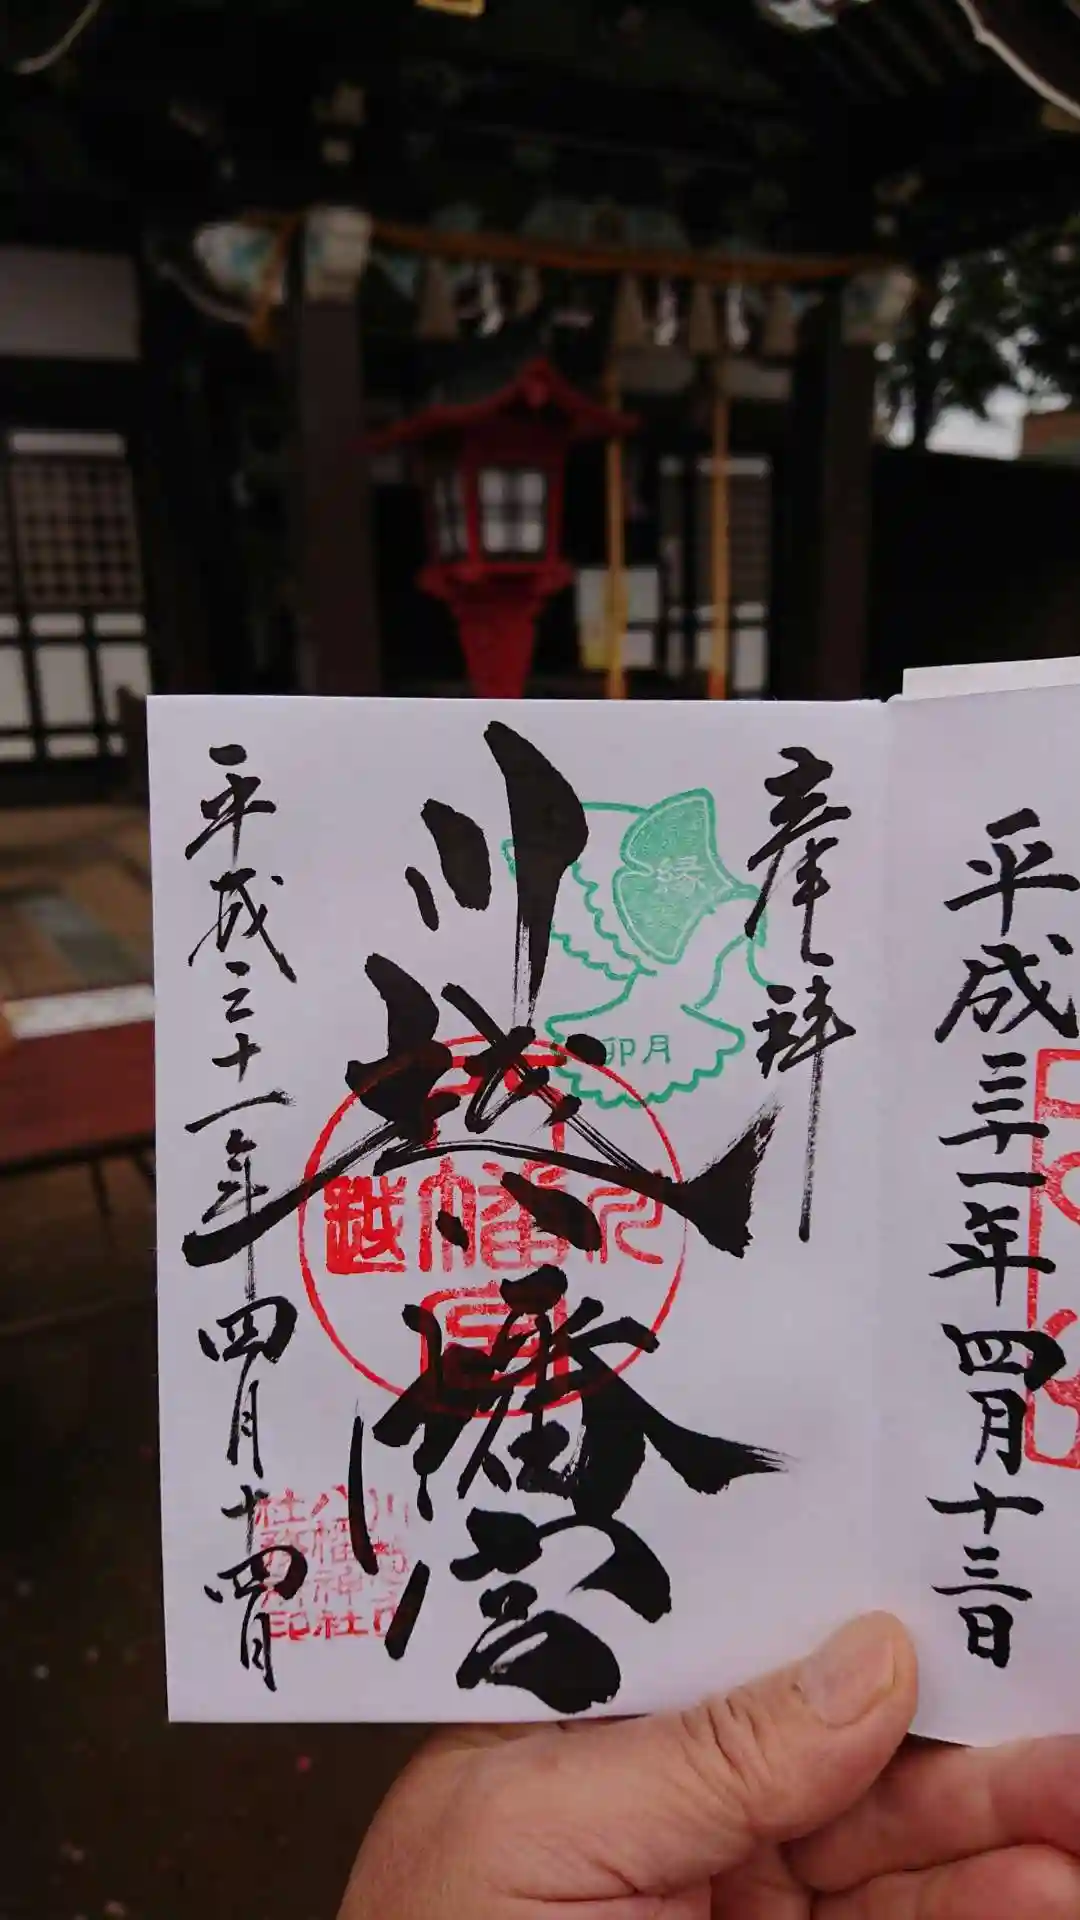 平成三十一年四月十三日
奉拝
縁
卯月
川越八幡宮
川越
八幡宮
川越市
八幡神社
社務所印
平成三十一年四月十四日